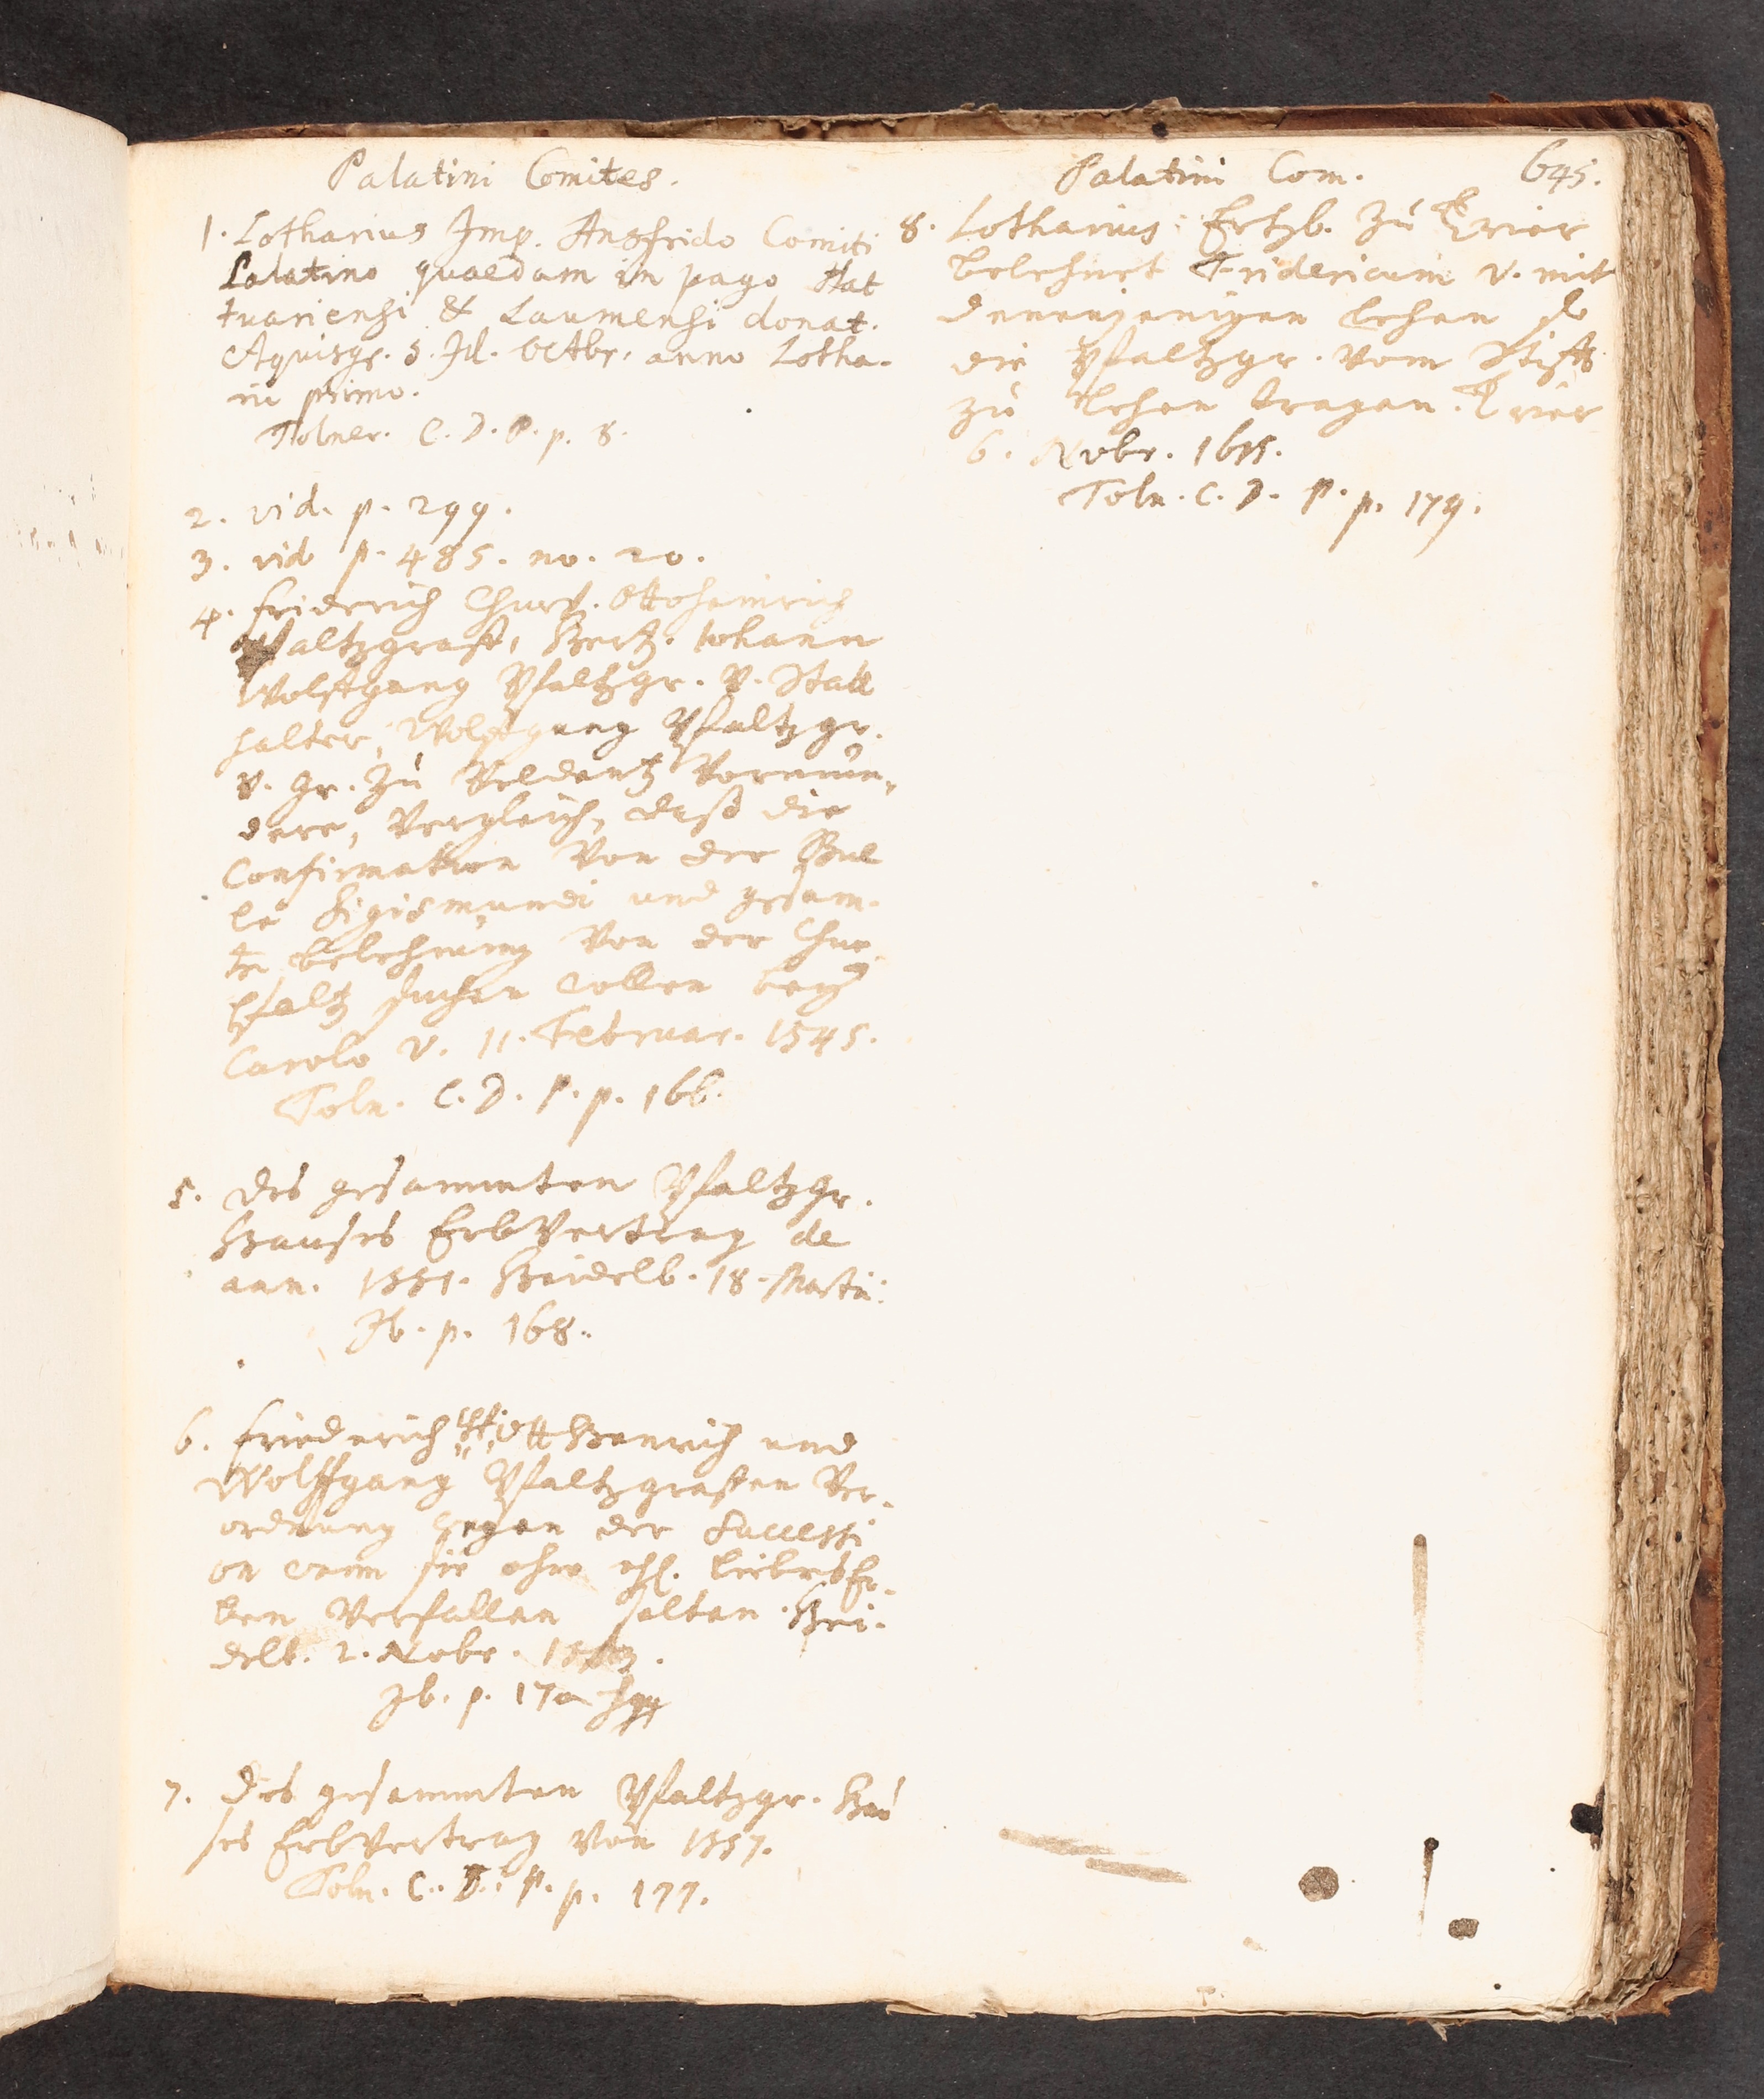 Palatini Comites.
1. Lotharius Imp. Ansfrido Comiti
Palatino quaedam in pago Hat
tuariensi & Laumensi donat.
Aquisgr. 3. Id. Octbr. anno Lotha-
rii primo.
Tolner. C. D. P. p. 8.
2. vid. p. 299.
3. vid p. 485. no. 20.
4. Friderich Churf. Ottoheinrich
Pfaltzgraff, Hertz. Johann
Wolffgang Pfaltzgr. v. Statt
halter, Wolffgang Pfaltzgr.
v. Gr. zu Veldentz Vormün-
dere, Vergleich, daß die
Confirmation Von der Bul
le Sigismundi und gesam-
te belehnung Von der Chur
Pfaltz suchen wollen bey
Carolo V. 11. Februar. 1545.
Toln. C. D. P. p. 166.
5. Des gesammten Pfaltzgr.
Hauses ErbVertrag de
ann. 1551. Heidelb. 18. Martii.
Ib. p. 168.
6. Friederich Chf. Ott Henrich und
Wolffgang Pfaltzgraffen Ver-
ordnung wegen der Successi
on wenn sie ohne ehl. LeibesEr-
ben Verfallen solten. Hei-
delb. 2. Nobr.
Ib. p. 170 sqq
7. Des gesammten Pfaltzgr. Hau
ses ErbVertrag Von 1557.
Toln. C. D. P. p. 177.
Palatini Com. 645.
8. Lotharius Ertzb. zu Trier
belehnet Fridericum V. mit
denenjenigen Lehen so
die Pfaltzgr. vom Stifft
zu Lehen tragen. Trier
6. Nobr. 1611.
Toln. C. D. P. p. 179.